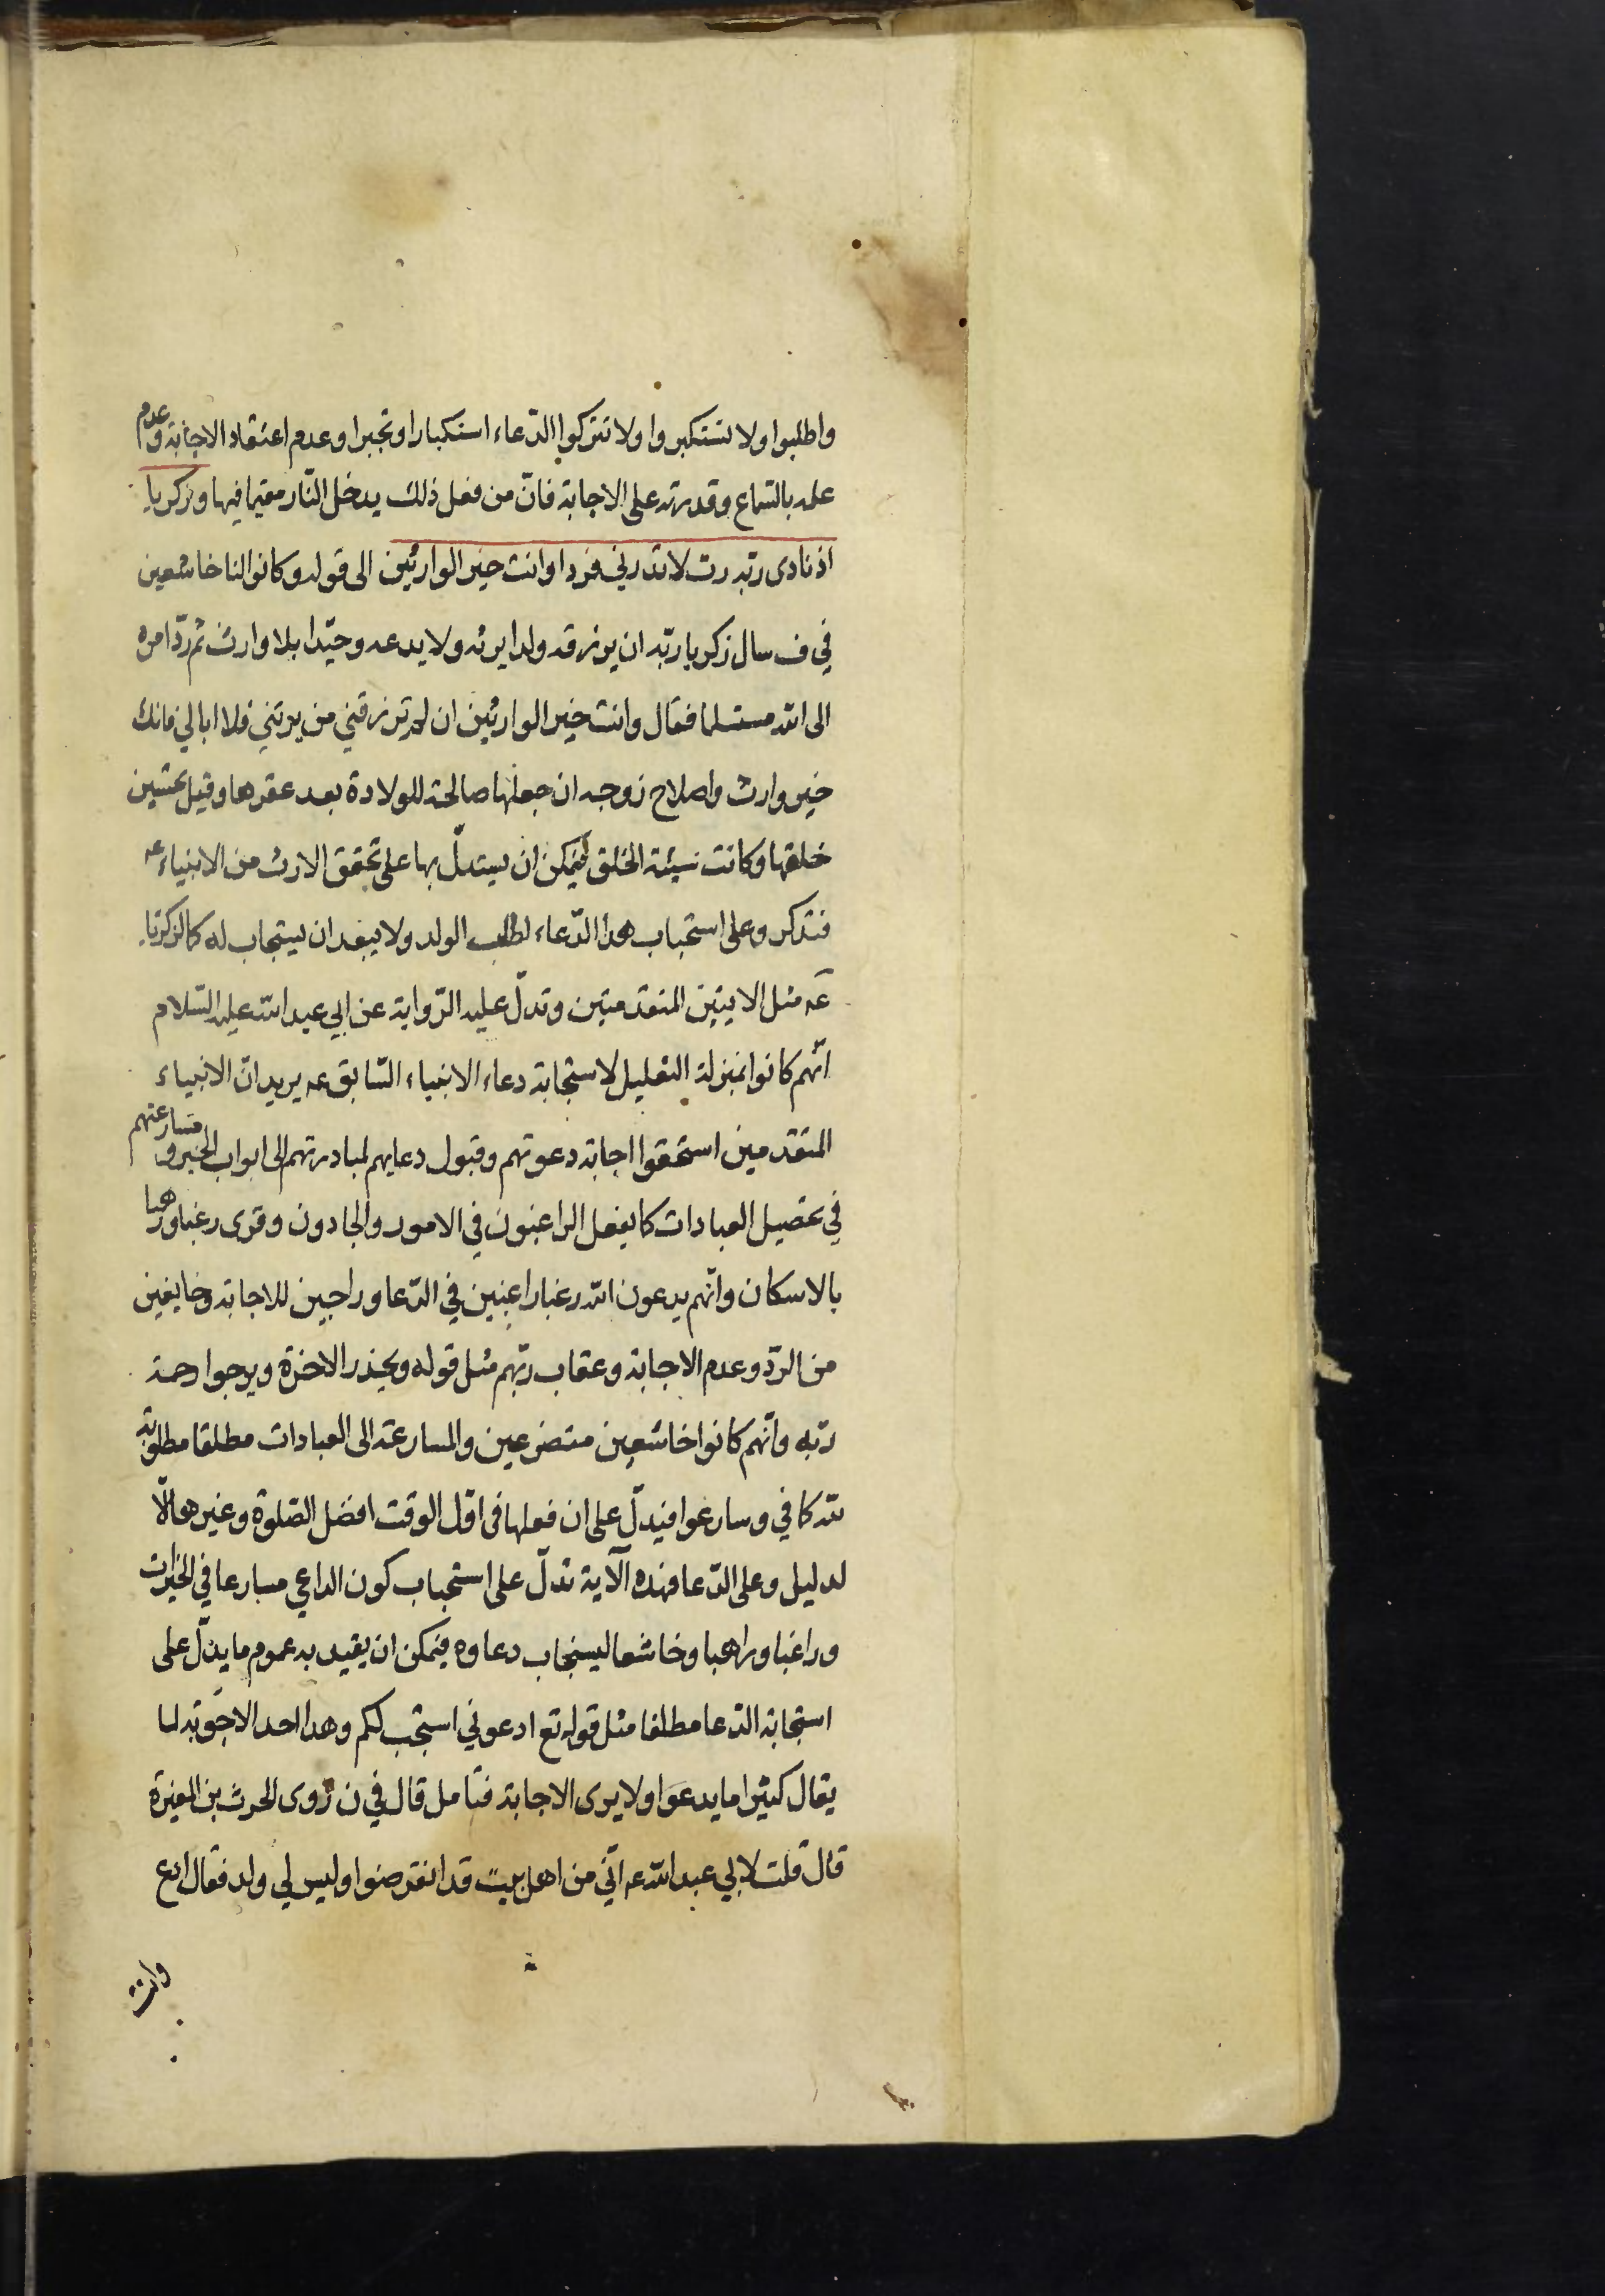 واطلبوا ولا تستكبروا ولا تتركوا الدّعاء استكبارا وتجبرا وعدم اعتقاد الاجابة وعدم
علمه بالسّماع وقدرته على الاجابة فانّ من فعل ذلك يدخل النّار مقيما فيها وزكريا
اذ نادى ربّه ربّ لا تذرني فردا وانت خير الوارثين الى قوله وكانوا لنا خاشعين
في ف سال زكريا ربّه ان يرزقه ولدا يرثه ولا يدعه وحيدا بلا وارث ثم ردّ امره
الى الله مستسلما فقال وانت خير الوارثين ان لم ترزقني من يرثني فلا ابالي فانك
خير وارث واصلاح زوجه ان جعلها صالحة للولادة بعد عقرها وقيل تحسين
خلقها وكانت سيئة الخلق فيمكن ان يستدلّ بها على تحقق الارث من الانبياء عه
فتذكر وعلى استحباب هذا الدّعاء لطلب الولد ولا يبعد ان يستجاب له كما لزكريا
عه مثل الايتين المتقدمتين وتدلّ عليه الرّواية عن ابي عبد الله عليه السّلام
انّهم كانوا بمنزلة التعليل لاستجابة دعاء الانبياء السّابق عه يريد انّ الانبياء
المتقدمين استحقوا اجابة دعوتهم وقبول دعايهم لمبادرتهم الى ابواب الخير و مسارعتهم
في تحصيل العبادات كما يفعل الراغبون في الامور والجادون وقرى رغبا ورهبا
بالاسكان وانّهم يدعون الله رغبا راغبين في الدّعا وراجين للاجابة وخايفين
من الردّ وعدم الاجابة وعقاب ربّهم مثل قوله ويحذر الاخرة ويرجوا رحمة
ربّه وانّهم كانوا خاشعين متضرعين والمسارعة الى العبادات مطلقا مطلوبة
لله كما في وسارعوا فيدلّ على ان فعلها في اوّل الوقت افضل الصّلوة وغيرها الّا
لدليل وعلى الدّعا فهذه الآية تدلّ على استحباب كون الداعي مسارعا في الخيرات
وراغبا وراهبا وخاشعا ليستجاب دعاوه فيمكن ان يقيد به عموم ما يدلّ على
استجابة الدّعا مطلقا مثل قوله تع ادعوني استجب لكم وهذا احد الاجوبة لما
يقال كثيرا ما يدعوا ولا يرى الاجابة فتامل قال في ن روى الحرث بن المغيرة
قال قلت لابي عبد الله عه انّي من اهل بيت قد انقرضوا وليس لي ولد فقال ادع
وانت